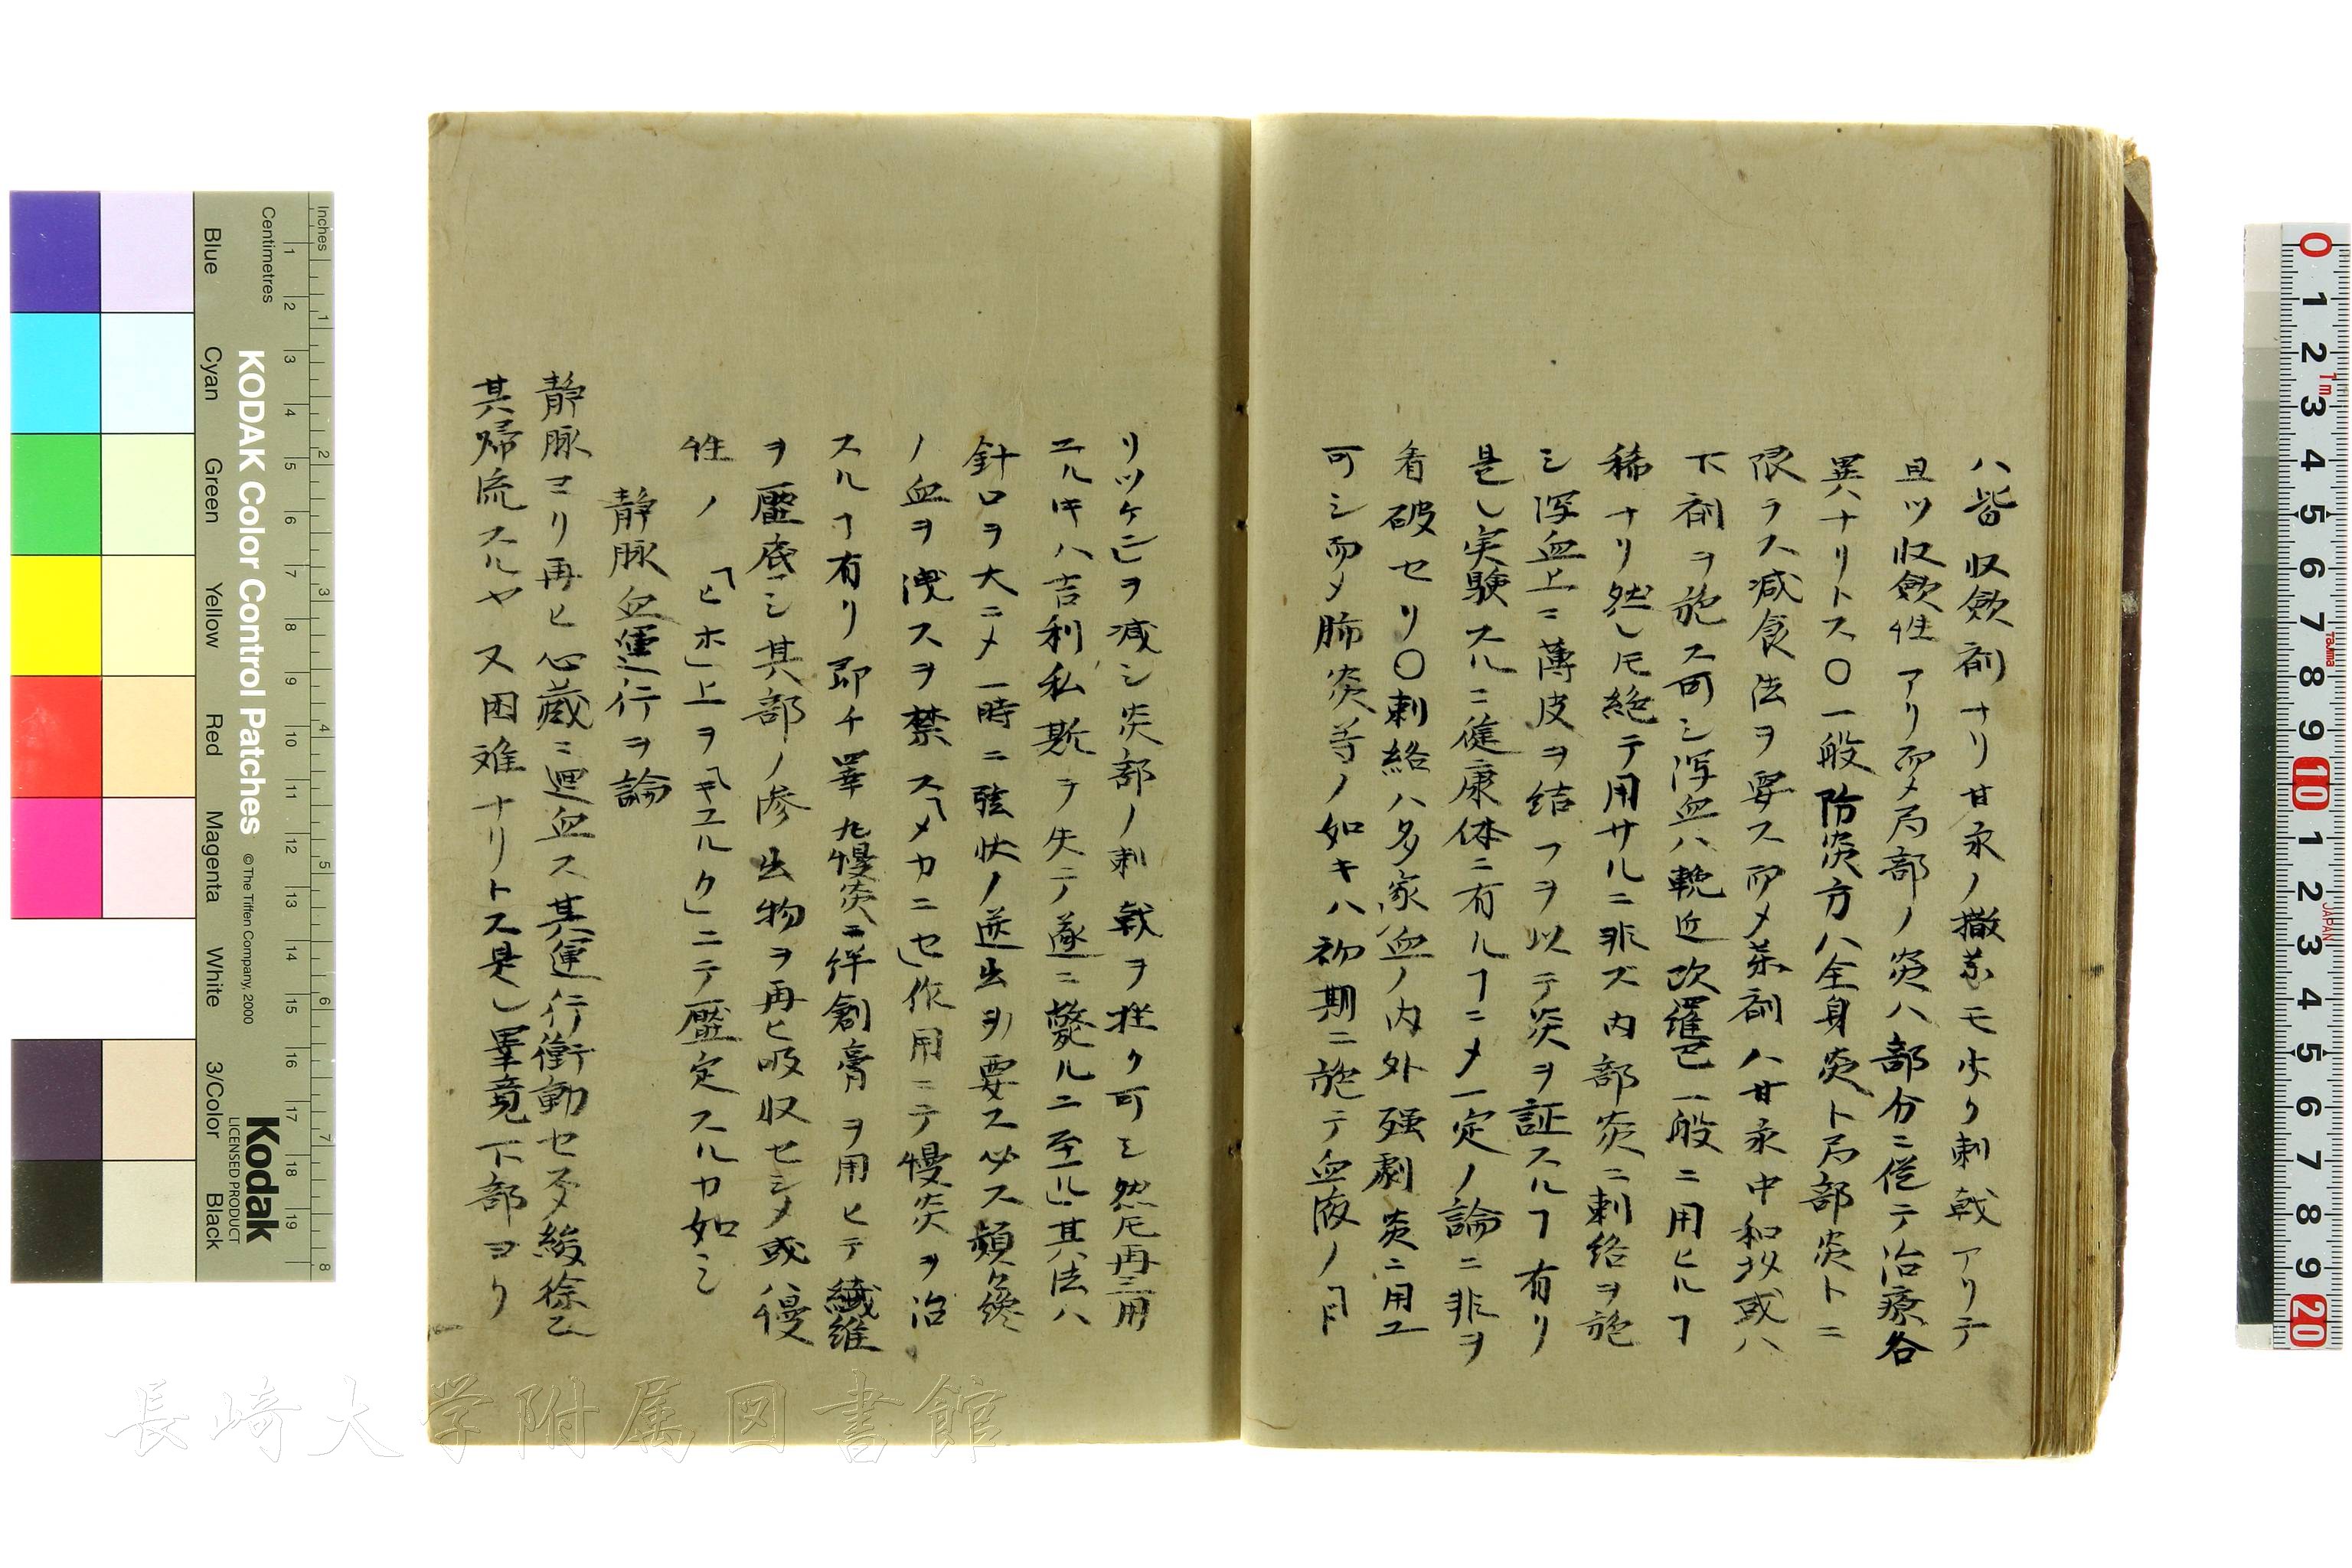 ハ皆収斂剤ナリ甘汞ノ撒布モ少ク刺戟アリテ
且ツ収斂性アリ而メ局部ノ炎ハ部分ニ従テ治療各
異ナリトス〇一般防炎方ハ全身炎ト局部炎トニ
限ラス減食法ヲ要ス而メ薬剤ハ甘汞中和以或ハ
下剤ヲ施ス可シ瀉血ハ輓近欧羅巴一般ニ用ヒルヿ
稀ナリ然レ𪜈絶テ用サルニ非ズ内部炎ニ刺絡ヲ施
シ瀉血上ニ薄皮ヲ結フヲ以テ炎ヲ証スルヿ有リ
是レ実験スルニ健康体ニ有ルヿニメ一定ノ論ニ非ヲ
看破セリ〇刺絡ハ多家血ノ内外強劇炎ニ用ユ
可シ而メ肺炎等ノ如キハ初期ニ施テ血液ノ「ド
リツケン」ヲ減シ炎部ノ刺戟ヲ挫ク可シ然𪜈再三用
ユル𪜈ハ吉利私斯ヲ失テ遂ニ斃ルニ至ル其法ハ
針口ヲ大ニメ一時ニ弦状ノ迸出ヲ要ス必ス頻々纔
ノ血ヲ洩スヲ禁ス「メカニセ」作用ニテ慢炎ヲ治
スルヿ有リ即チ睾丸慢炎ニ絆創膏ヲ用ヒテ繊維
ヲ壓底シ其部ノ滲出物ヲ再ヒ吸収セシメ或ハ慢
性ノ「ヒホ」上ヲ「キユルク」ニテ壓定スルカ如シ
静脉血運行ヲ論
静脉ヨリ再ヒ心蔵ニ廻血ス其運行衝動セス緩徐ニ
其帰流スルヤ又困難ナリトス是レ畢竟下部ヨリ
Inches
Centimetres
KODAK Color Control Patches
© The Tiffen Company, 2000
Blue
Cyan
Green
Yellow
Red
Magenta
White
3/Color
Black
Kodak
LICENSED PRODUCT
長崎大学附属図書館